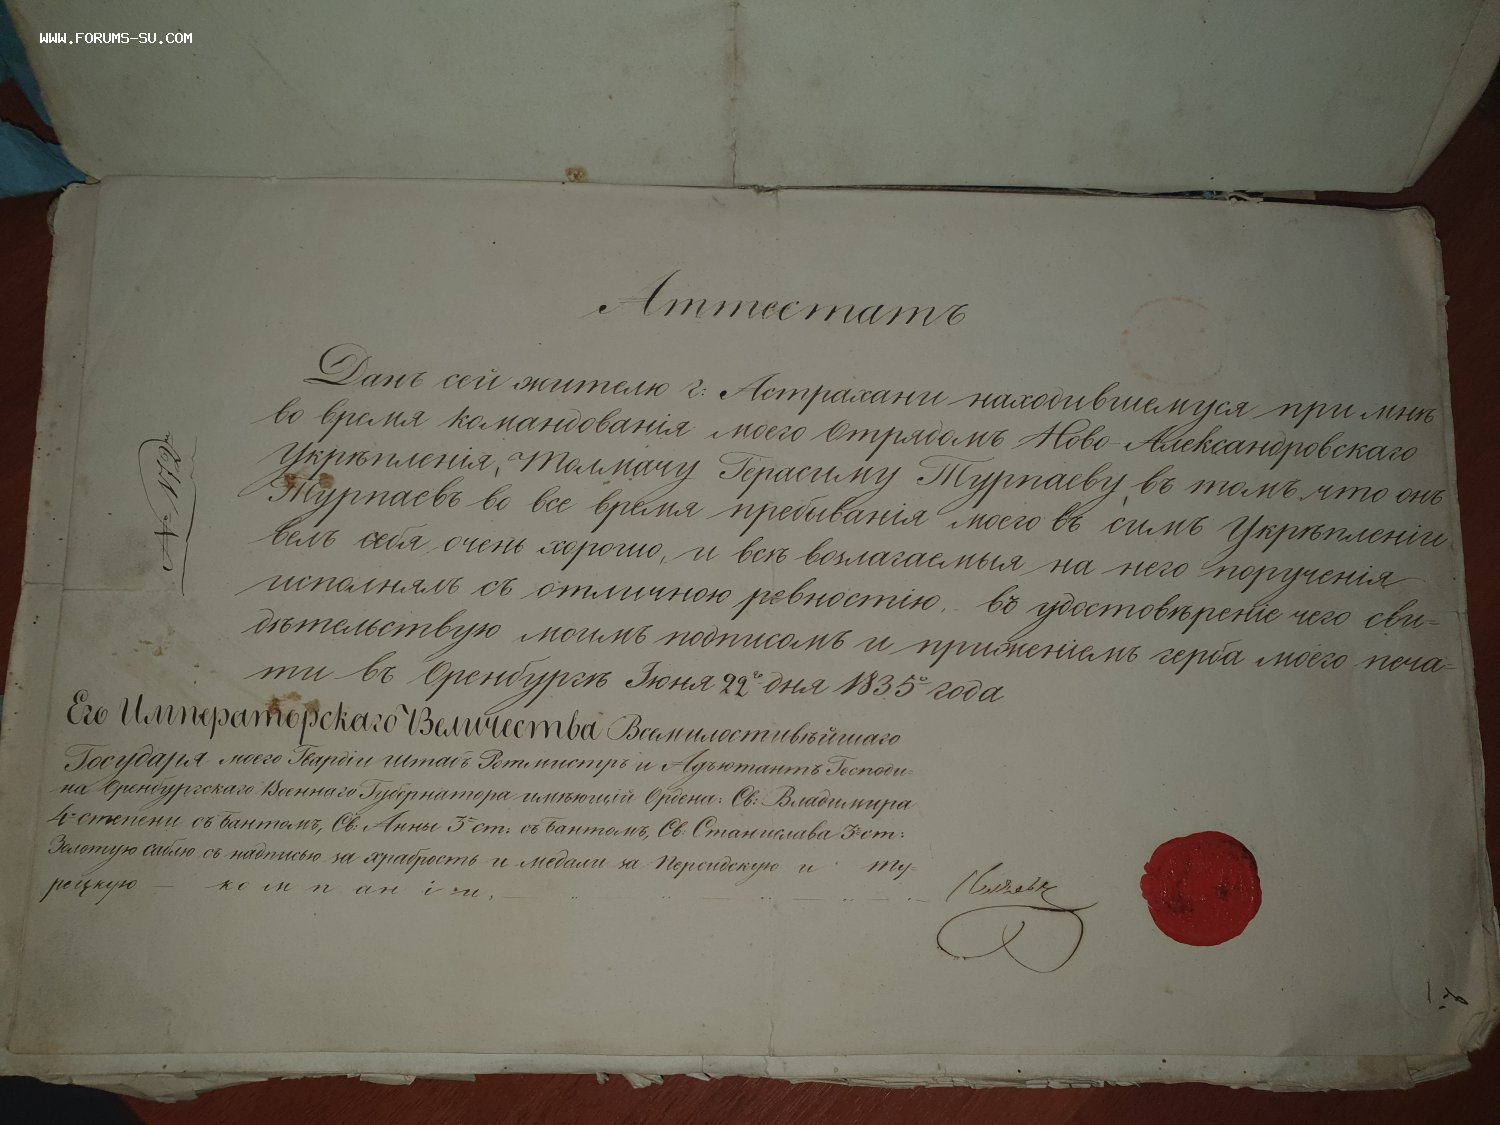 WWW.FORUMS-SU.COM
Аттестатъ
Данъ сей жителю г: Астрахани находившемуся при мнѣ
во время командованія моего Отрядомъ Ново-Александровскаго
Укрѣпленія, Толмачу Герасиму Турпаеву, въ томъ что онъ
Турпаевъ во все время пребыванія моего въ симъ Укрѣпленіи
велъ себя очень хорошо, и всѣ возлагаемыя на него порученія
исполнялъ съ отличною ревностію, въ удостовѣреніе чего сви-
дѣтельствую моимъ подписомъ и приложеніемъ герба моего печа-
ти въ Оренбургѣ Іюня 22го дня 1835го года
Его Императорскаго Величества Всемилостивѣйшаго
Государя моего Гвардіи штабъ Ротмистръ и Адъютантъ Господи-
на Оренбургскаго Военнаго Губернатора имѣющій Ордена: Св: Владимира
4й степени съ бантомъ, Св: Анны 3й ст: съ бантомъ, Св: Станислава 3й ст:
Золотую саблю съ надписью за храбрость и медали за Персидскую и Ту-
рецкую — компаніи,
№ 112